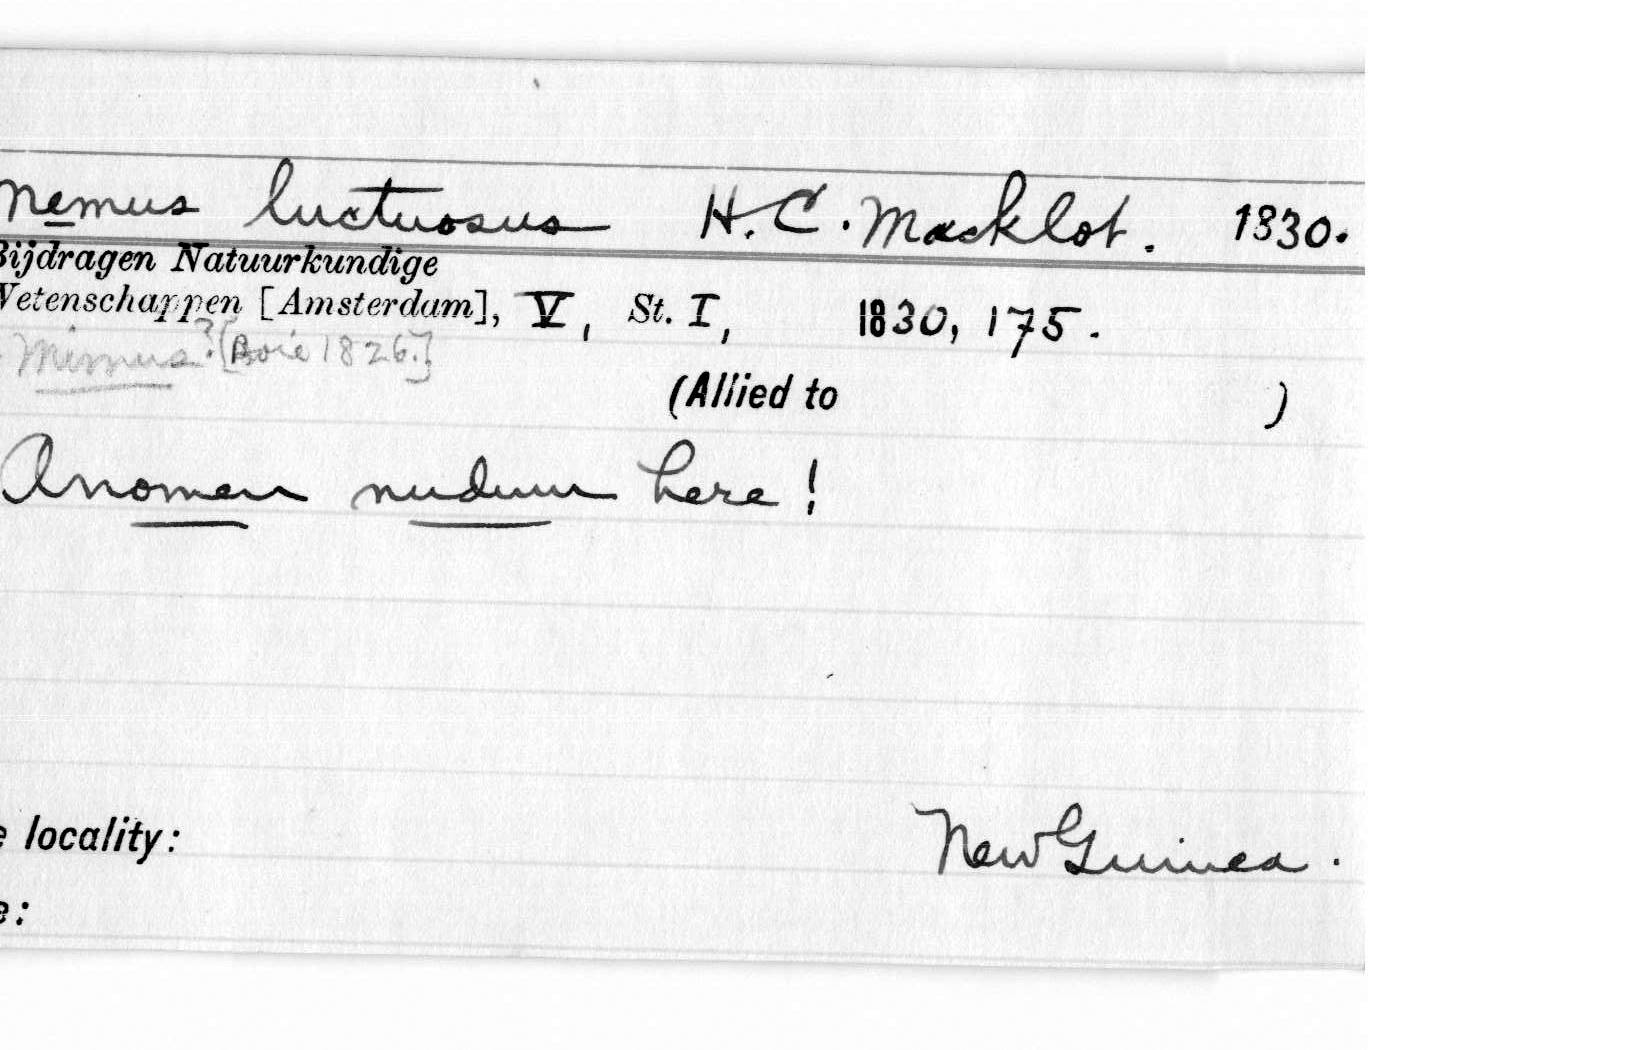 nemus luctuosus H.C. Macklot. 1830.
Bijdragen Natuurkundige
Wetenschappen [Amsterdam], V, St. I, 1830, 175.
Mimus? [Boie 1826.]
(Allied to )
A nomen nudum here!
e locality: New Guinea.
e: